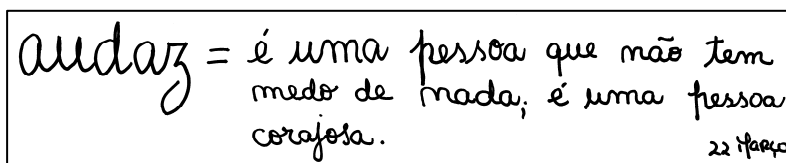 audaz = é uma pessoa que não tem
medo de nada; é uma pessoa
corajosa.
22 Março